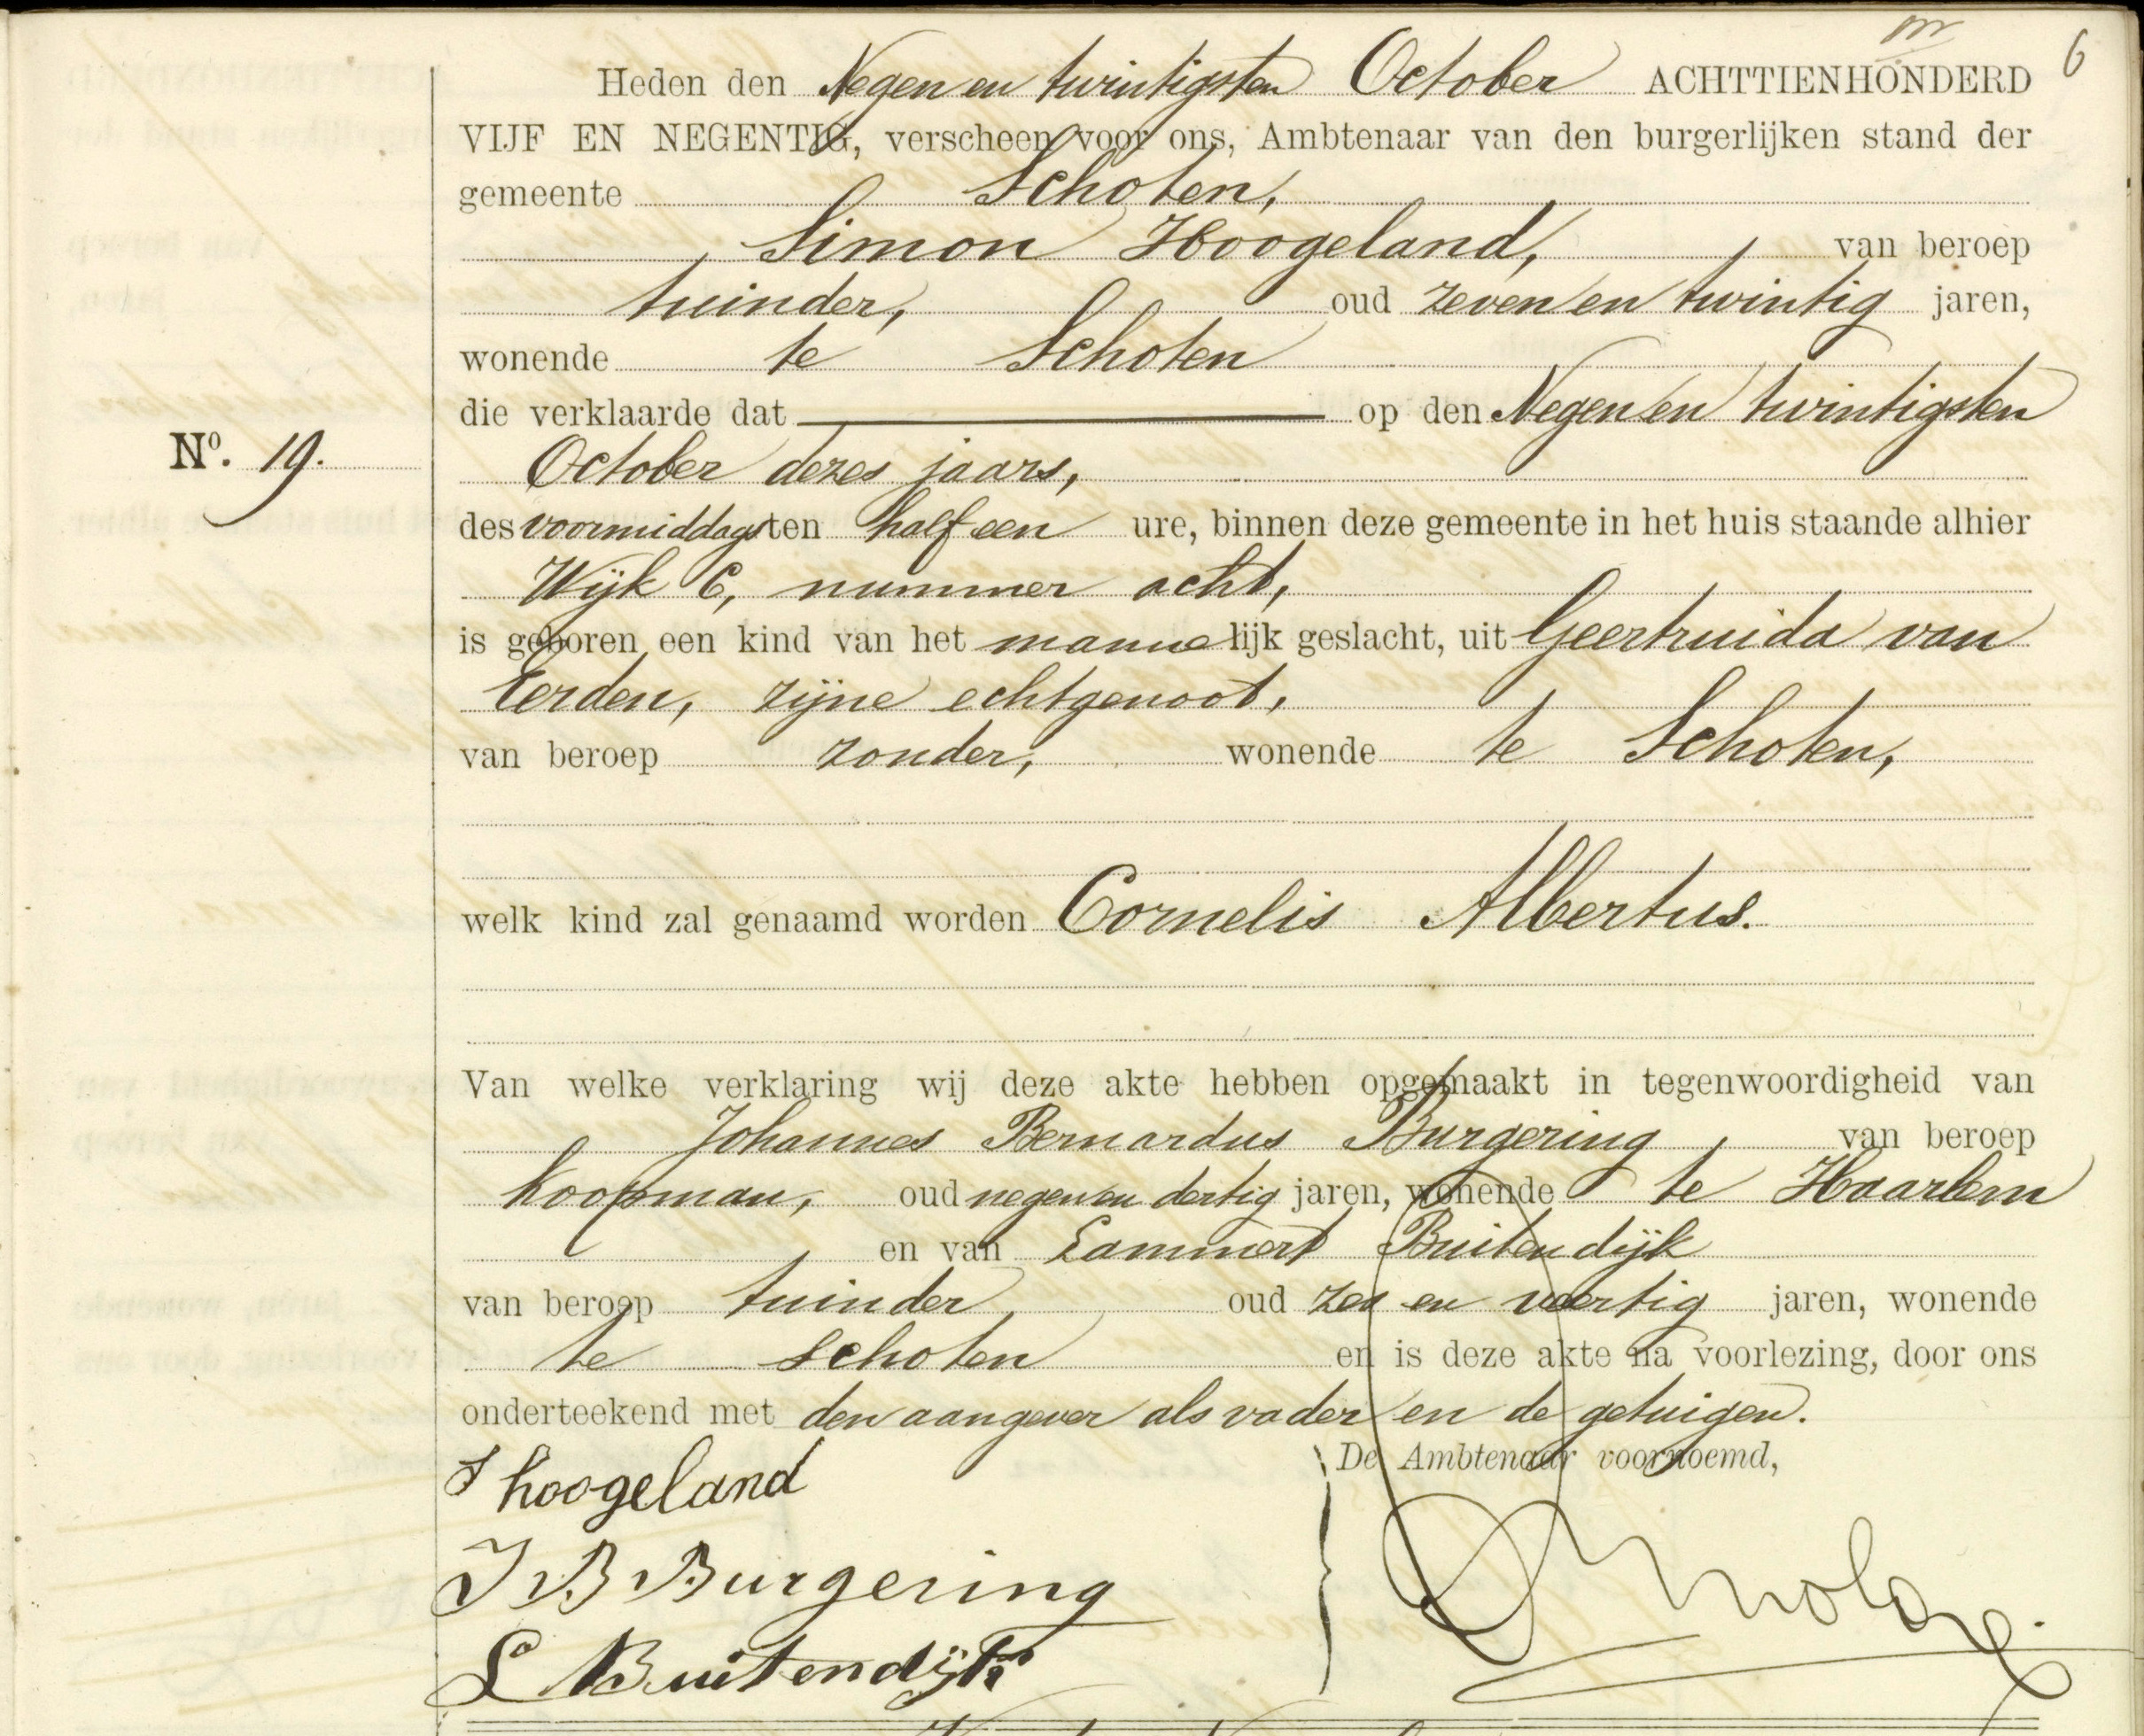 m 6
Heden den Negen en twintigsten October ACHTTIENHONDERD
VIJF EN NEGENTIG, verscheen voor ons, Ambtenaar van den burgerlijken stand der
gemeente Schoten,
Simon Hoogeland, van beroep
tuinder, oud zeven en twintig jaren,
wonende te Schoten
die verklaarde dat op den Negen en twintigsten
Nº. 19.
October dezes jaars,
des voormiddags ten half een ure, binnen deze gemeente in het huis staande alhier
Wijk C, nummer acht,
is geboren een kind van het mannelijk geslacht, uit Geertruida van
Eerden, zijne echtgenoot,
van beroep zonder, wonende te Schoten,
welk kind zal genaamd worden Cornelis Albertus.
Van welke verklaring wij deze akte hebben opgemaakt in tegenwoordigheid van
Johannes Bernardus Burgering, van beroep
koopman, oud negen en dertig jaren, wonende te Haarlem
en van Lammert Buitendijk
van beroep tuinder, oud zes en veertig jaren, wonende
te Schoten en is deze akte na voorlezing, door ons
onderteekend met den aangever als vader en de getuigen.
De Ambtenaar voornoemd,
S hoogeland
J B Burgering
L Buitendijk